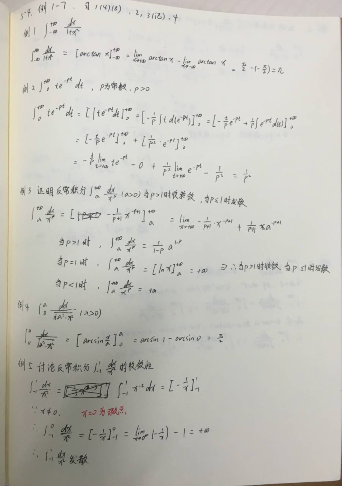 5.4. 例1-7
例1 ∫_{-∞}^{+∞} dx/(1+x²)
∫_{-∞}^{+∞} dx/(1+x²) = [arctan x]_{-∞}^{+∞} = lim_{x→+∞} arctan x - lim_{x→-∞} arctan x = π/2 - (-π/2) = π
例2 ∫_0^{+∞} te^{-pt} dt, p为常数, p>0
∫_0^{+∞} te^{-pt} dt = [∫te^{-pt}dt]_0^{+∞} = [-1/p ∫t d(e^{-pt})]_0^{+∞} = [-t/p e^{-pt} + 1/p ∫e^{-pt}dt]_0^{+∞}
= [-t/p e^{-pt}]_0^{+∞} + [-1/p² e^{-pt}]_0^{+∞}
= -1/p lim_{t→+∞} te^{-pt} - 0
例3 证明反常积分 ∫_a^{+∞} dx/x^p (a>0) 当p>1时收敛, 当p≤1时发散
∫_a^{+∞} dx/x^p
当p>1时, ∫_a^{+∞} dx/x^p
当p=1时, ∫_a^{+∞} dx/x^p = [ln x]_a^{+∞} = +∞ ∴当p>1时收敛, 当p≤1时发散
当p<1时, ∫_a^{+∞} dx/x^p = +∞
例4 ∫_0^a dx/√(a²-x²) (a>0)
∫_0^a dx/√(a²-x²) = [arcsin x/a]_0^a = arcsin 1 - arcsin 0 = π/2
例5 讨论反常积分 ∫_{-1}^1 dx/x² 的收敛性
∫_{-1}^1 dx/x² = ∫_{-1}^1 x^{-2}dx = [-1/x]_{-1}^1
∵ x≠0, x=0为瑕点
∴ ∫_{-1}^0 dx/x² = [-1/x]_{-1}^0 = lim_{x→0⁻} (-1/x) - 1 = +∞
∴ ∫_{-1}^1 dx/x² 发散